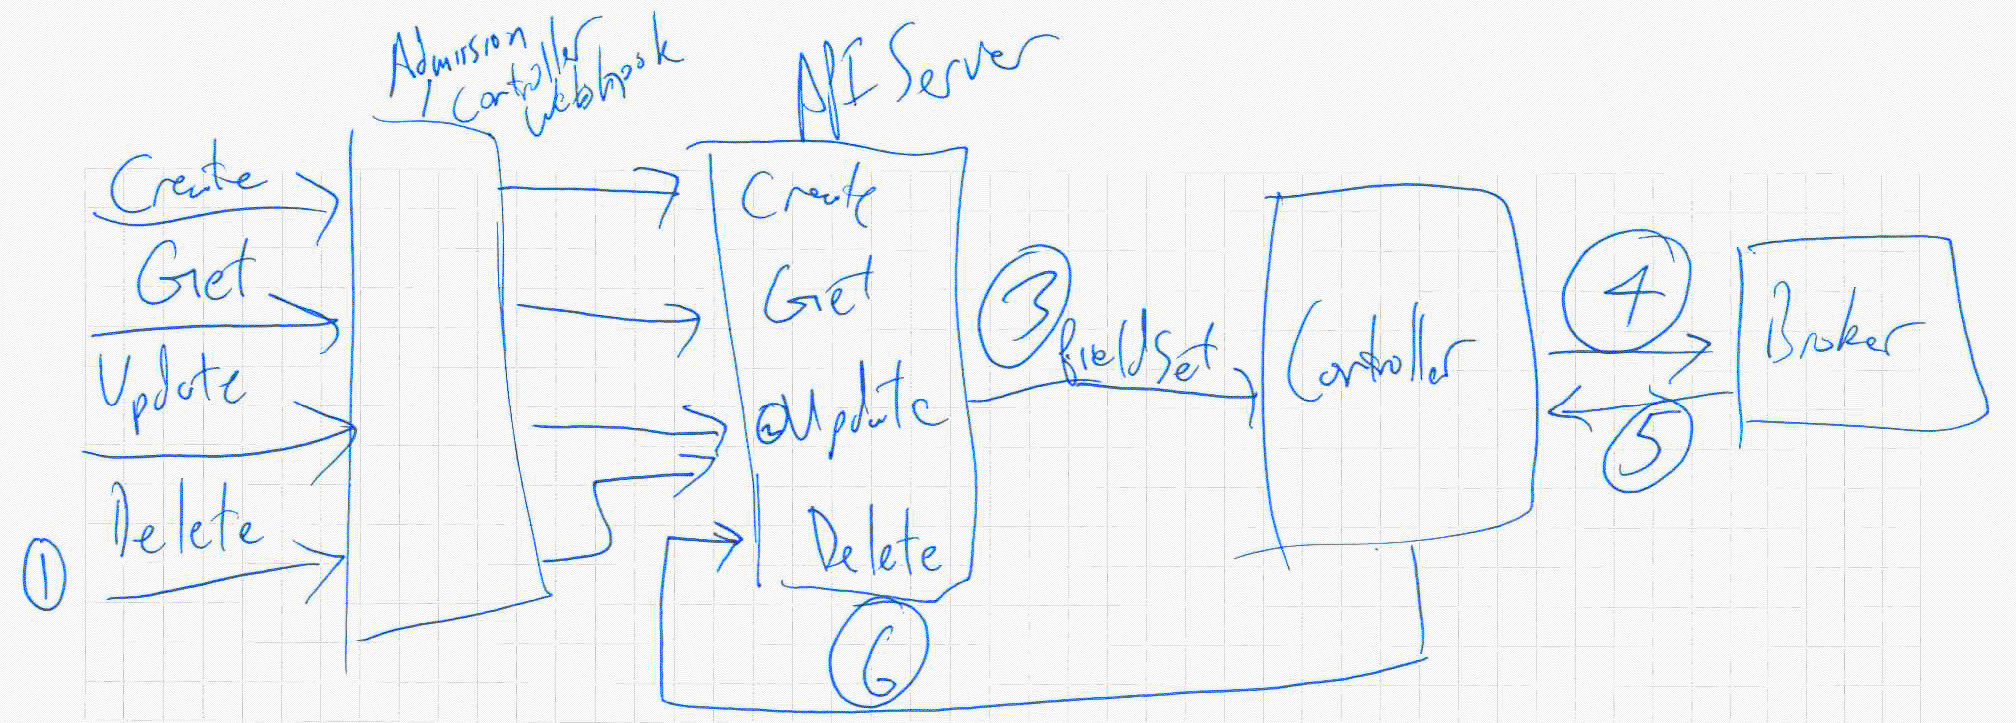 Admission
Controller
Webhook
API Server
Create
Get
Update
Delete
1
Create
Get
2 Update
Delete
3
field Set
Controller
4
5
Broker
6